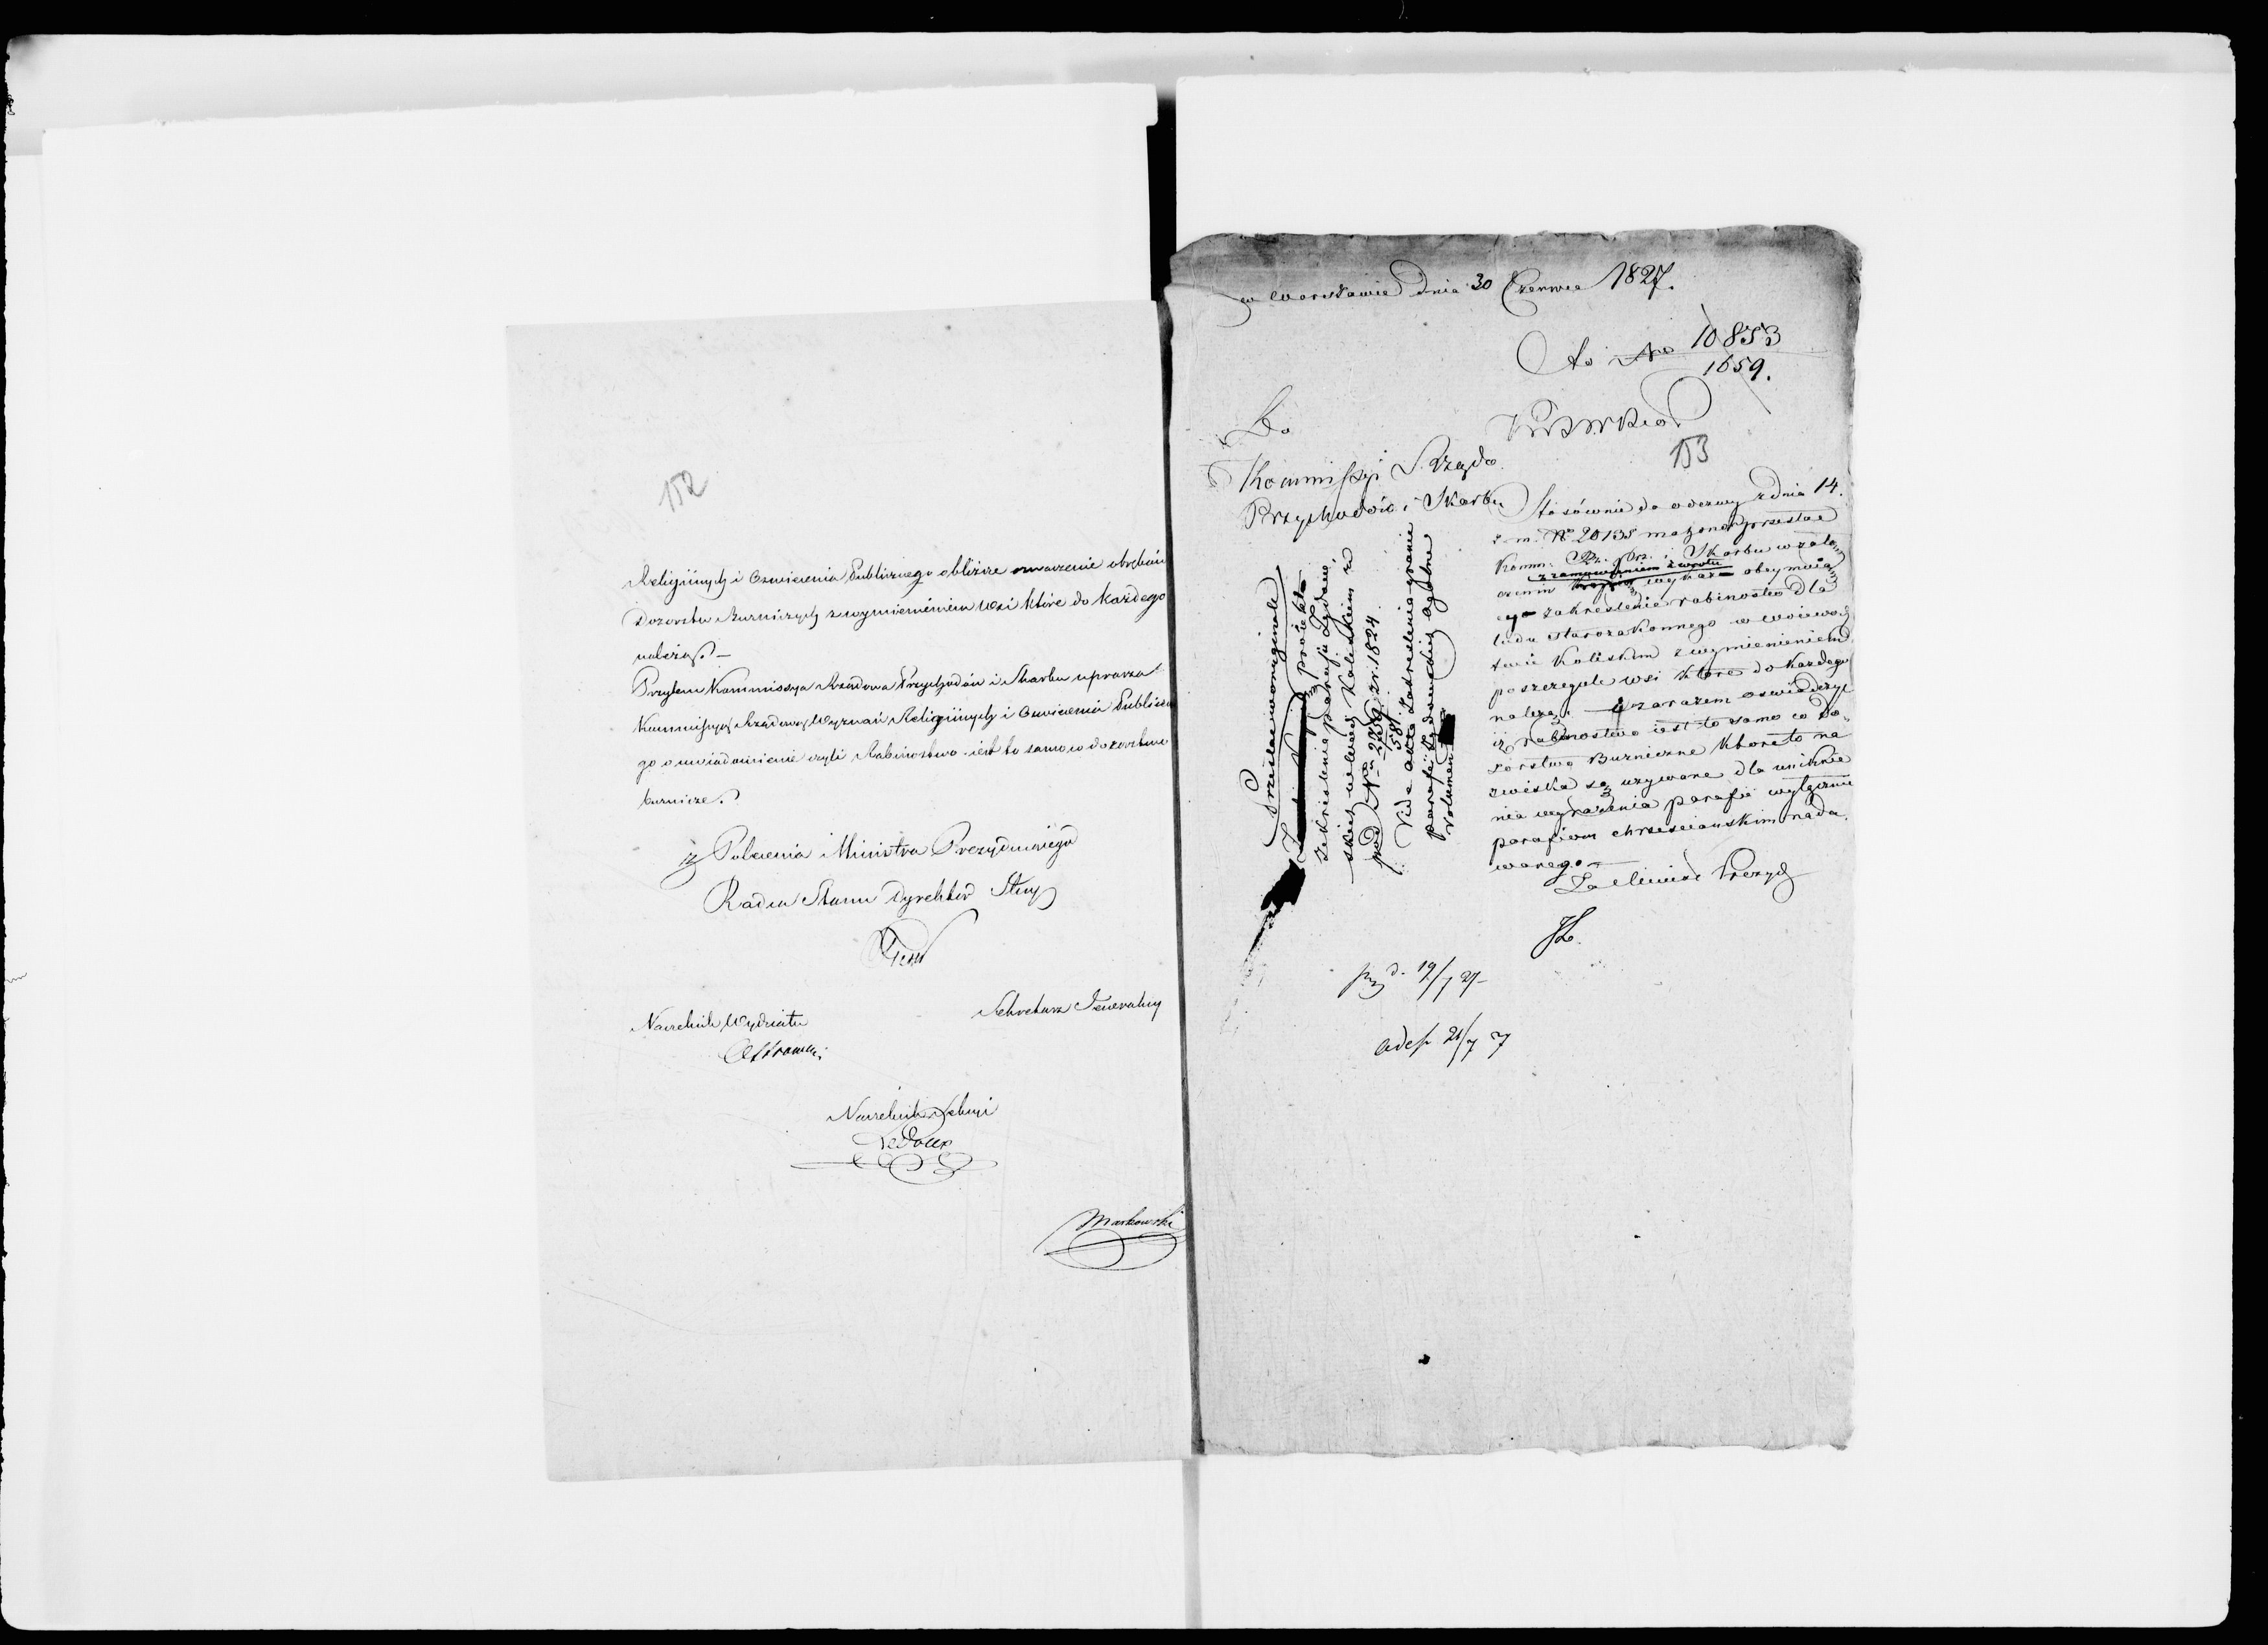 152
Religiinych i Oswiecenia Publicznego obliższe oznaczenie obrębów
Dozorstw Bużniczych z wymienieniem Wsi które do każdego
należą. –
Przytem Kommissya Rządowa Przychodów i Skarbu uprasza
Kommissyą Rządową Wyznań Religiinych i Oswiecenia Publiczne
go o uwiadomienie czyli Rabinostwo jest to samo co dozorstwo
bużnicze.
z Polecenia Ministra Prezyduiącego
Radca Stanu Dyrektor Jlny
Sekretarz Jeneralny
Naczelnik Wydziału
Naczelnik Sekcyi
Ledoux
Markowski
w Warszawie dnia 30 Czerwca 1827.
do No 10853
1659.
153
Do
Kommissyi Rządo.
Przychodów i Skarbu
Stosównie do odezwy z dnia 14.
z. m. No 20135 ma honor przesłać
Komm. Rz. Prz. i Skarbu w załą
z zamowieniem zwrotu
czeniu wykaz obeymuią
cy zakreslenie rabinostw dla
ludu starozakonnego w woiewodz
twie Kaliskim z wymienieniem
poszczegule wsi które do każdego
należą, i zarazem oswiadczyć
iż rabinostwo iest to samo co Do=
zorstwo Bużniczne które to na
zwiska są używane dla uniknie
nia wyrażenia parafii wyłącznie
parafiom chrzesciańskim nada.
wanego. –
Za Ministr Prezyd
Przesłać w oryginale
projekt
zakreslenia parafii żydow
skich w Wwdz Kaliskiem
pod No 2739 zr. 1824.
581.
Vide akta zakreslenia granic
parafii żydowskich ogólne
volumen
19/7 27
21/7 27